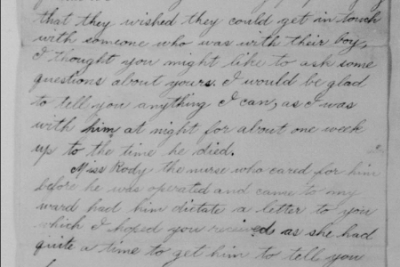 that they wished they could get in touch
with someone who was with their boy,
I thought you might like to ask some
questions about yours. I would be glad
to tell you anything I can, as I was
with him at night for about one week
up to the time he died.
Miss Rody the nurse who cared for him
before he was operated and came to my
ward had him dictate a letter to you
which I hoped you received as she had
quite a time to get him to tell you